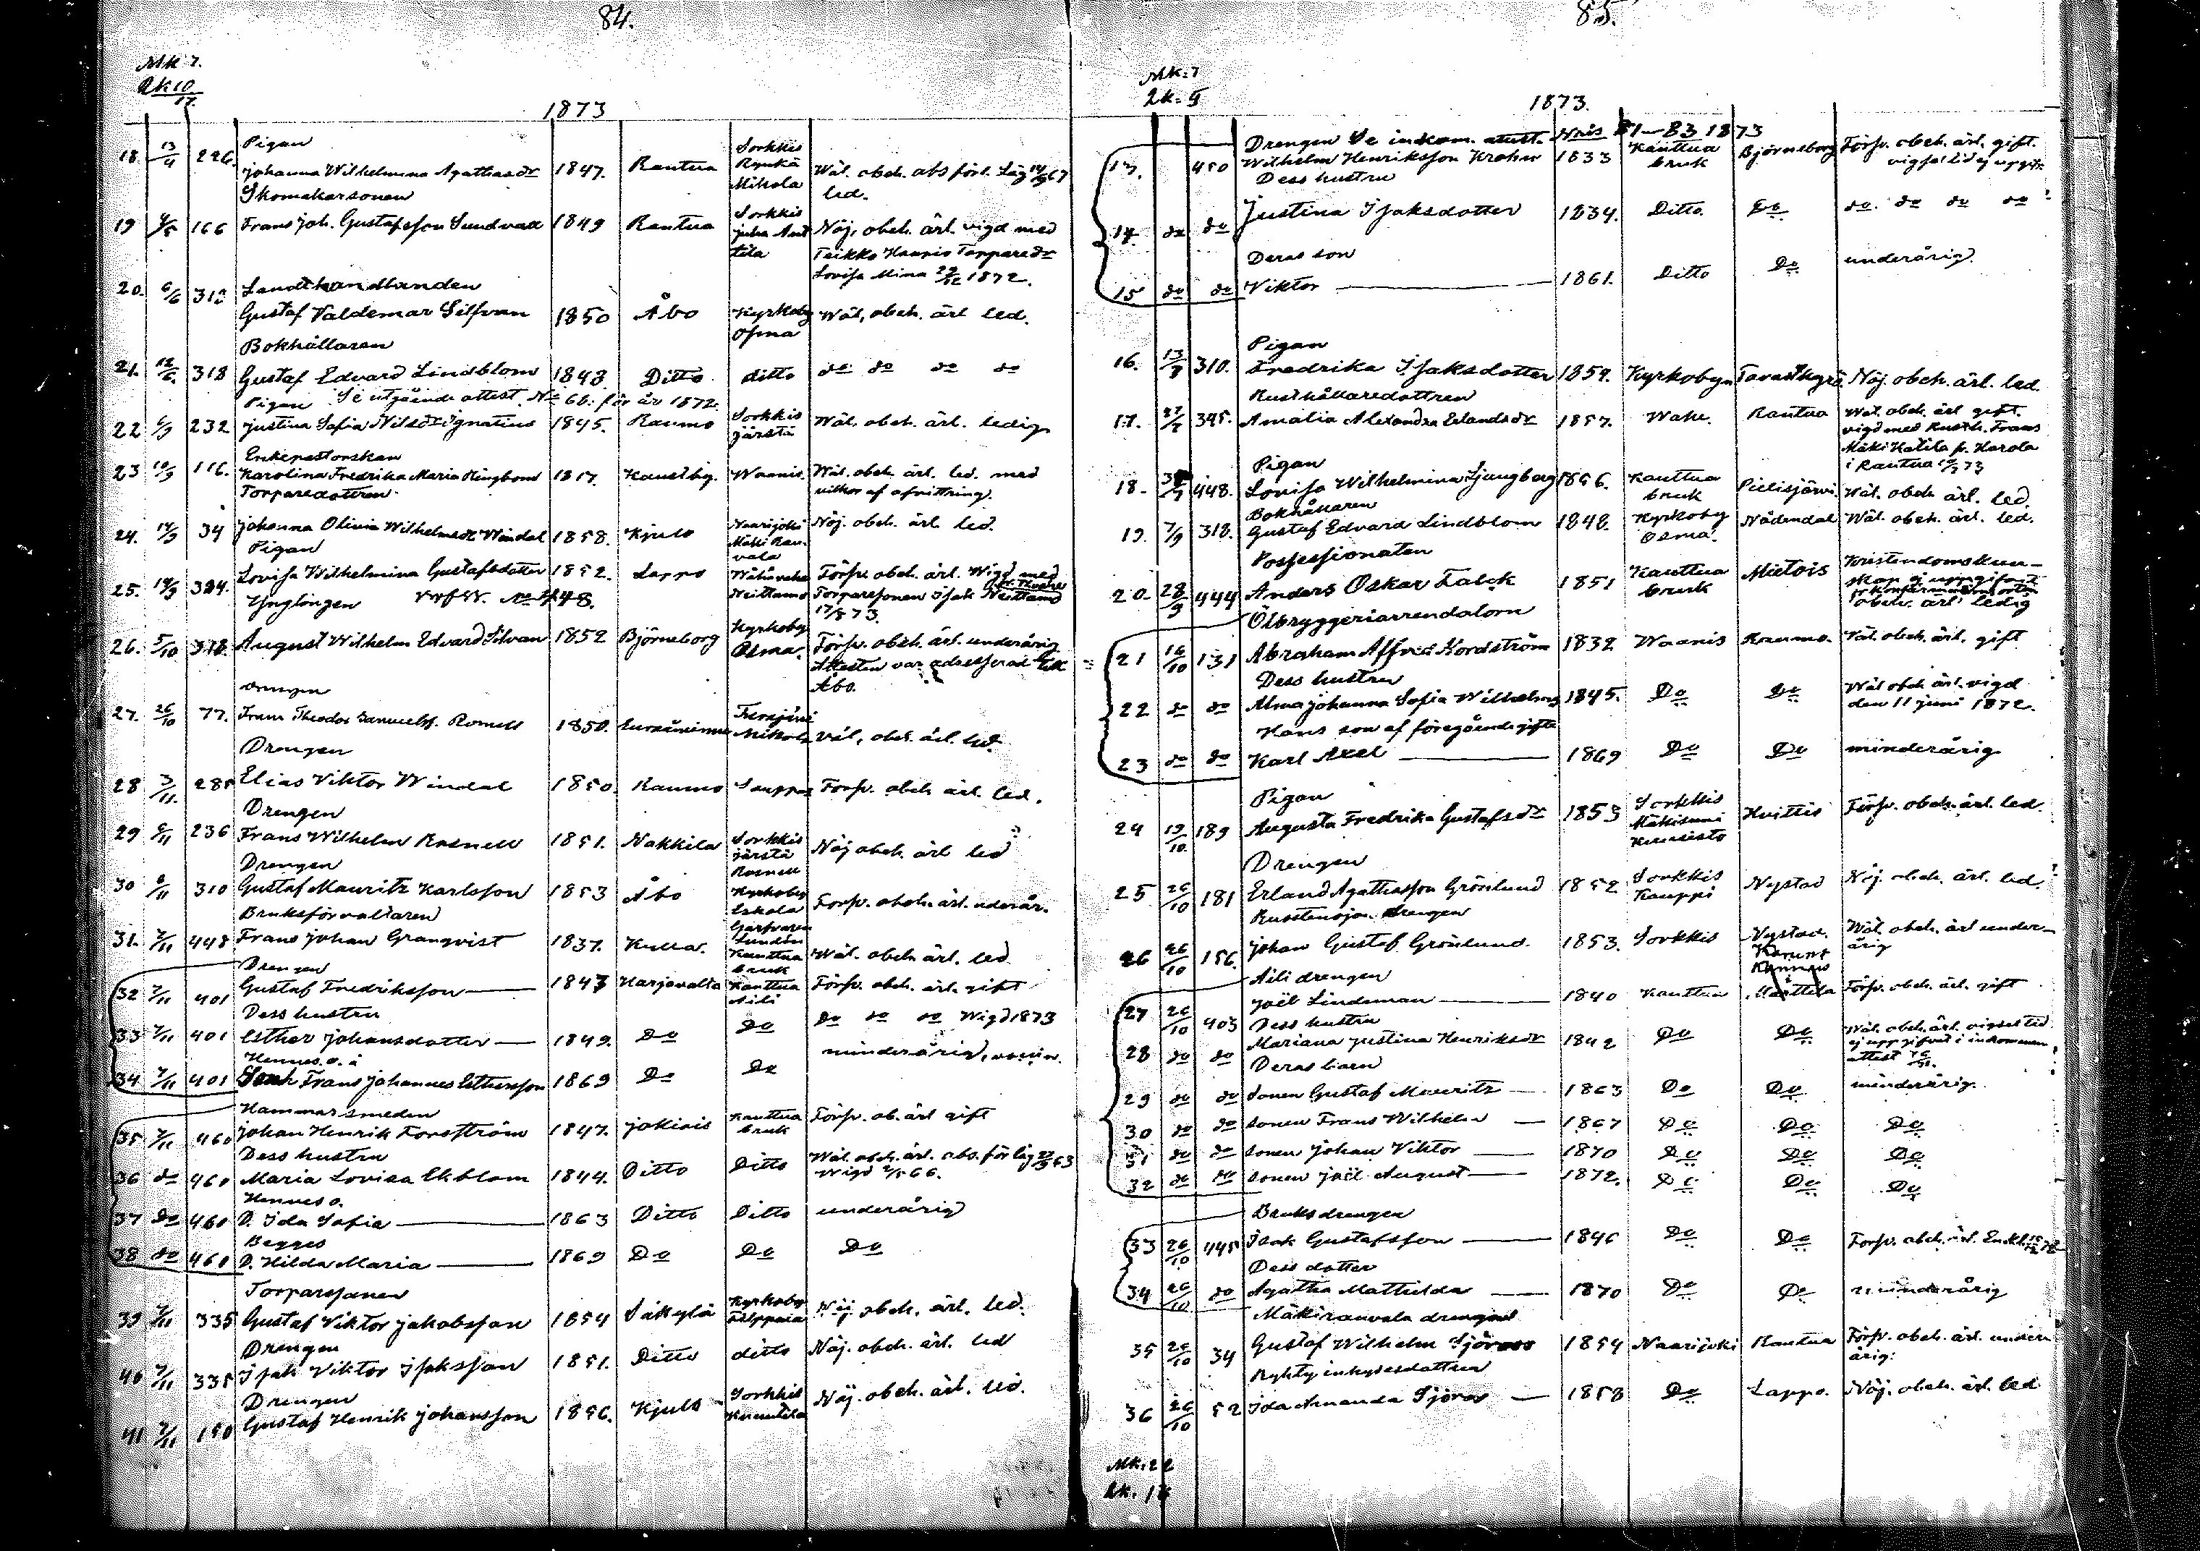 84.
Mk 7.
Qk 10
17
1873
Pigan
18. 13/4 226. Johanna Wilhelmina Agathasdr 1847. Rantua Sorkkis Mikola Wäl. obeh. abs förl. led.
Skomakarsonen
19 166 Frans Joh. Gustafsson Sundvall 1849 Rantua Sorkkis Juha Anttila Nöj. obeh. ärl. vigd med
Lovisa Mina 1872.
20. 6/6 312 Landthandlanden
Gustaf Valdemar Silfvan 1850 Åbo Kyrkoby Osma Wäl. obeh. ärl led.
Bokhållaren
21. 12/6. 318 Gustaf Edvard Lindblom 1848 Ditto ditto do do do do
Pigan Se utgående attest No 66: för år 1872.
22 6/9 232 Justina Sofia Nilsdr Ignatius 1845. Raumo Sorkkis Järstä Wäl. obeh. ärl. ledig
Enkepastorskan
23 10/9 116. Karolina Fredrika Maria Ringbom 1817. Kaustby. Waanis. Wäl. obeh. ärl. led. med
vilkor af afvittring.
Torparedottren.
24. 14/9 34 Johanna Olivia Wilhelmsdr Windal 1858. Kjulo Naarijoki Mäki Rauvala Nöj. obeh. ärl led.
Pigan
25. 14/9 324. Lovisa Wilhelmina Gustafsdotter 1852. Lappo Neittamo Försv. obeh. ärl. Wigd med
Torparesonen Isak Neittamo
17/8 73.
Ynglingen
26. 5/10 318. August Wilhelm Edvard Silvan 1852 Björneborg Kyrkoby Osma. Försv. obeh. ärl. underårig
Attesten var adresserad till
Åbo.
Drengen
27. 26/10 77. Frans Theodor Samuelss. Romell 1850. Euraåminne Mikola Väl, obeh. ärl. led.
Drengen
28 3/11. 285 Elias Viktor Windal 1850. Raumo Sauppa Försv. obeh ärl. led.
Drengen
29 6/11 236 Frans Wilhelm Rosnell 1851. Nakkila Sorkkis Järstä Rosnell Nöj obeh. ärl led
Drengen
30 6/11 310 Gustaf Mauritz Karlsson 1853 Åbo Kyrkoby Eskola Garfvaren Lundén Försv. obeh. ärl. underår.
Bruksförvaltaren
31. 7/11 448 Frans Johan Granqvist 1837. Kulla. Kauttua bruk Wäl. obeh ärl. led
Drengen
32 7/11 401 Gustaf Fredriksson 1847 Harjavalta Kauttua Aili Försv. obeh. ärl. gift
Dess hustru
33 7/11 401 Esther Johansdotter 1849. Do Do Do do do Wigd 1873
Hennes o. ä
34 7/11 401 Frans Johannes Esthersson 1869 Do Do minderårig,
Hammarsmeden
35 7/11 460 Johan Henrik Forsström 1847. Jokinis Kauttua bruk Försv. ob. ärl gift
Dess hustru
36 do 460 Maria Lovisa Ekblom 1844. Ditto Ditto Wäl. obeh. ärl. abs. för läg 63
Wigd 66.
Hennes o.
37 Do 460 D. Ida Sofia 1863 Ditto Ditto underårig
Begges
38 do 460 D. Hilda Maria 1869 Do Do Do
Torparsonen
39 7/11 335 Gustaf Viktor Jakobsson 1854 Säkylä Kyrkoby Filppula Nöj obeh. ärl. led.
Drengen
40 7/11 335 Isak Viktor Isaksson 1851. Ditto ditto Nöj. obeh. ärl. led
Drengen
41 7/11 150 Gustaf Henrik Johansson 1856. Kjulo Sorkkis Knuutila Nöj. obeh. ärl. led.
85.
Mk: 7
Qk. 9
1873.
Drengen Se inkom. attest. Nris 81–83 1873
13. 450 Wilhelm Henriksson Krohn 1833 Kauttua bruk Björneborg Försv. obeh. ärl. gift.
vigsel tid ej uppgif.
Dess hustru
14. do do Justina Isaksdotter 1834. Ditto Do do. do do do
Deras son
15 do do Viktor 1861. Ditto Do underårig.
Pigan
16. 13/7 310. Fredrika Isaksdotter 1854. Kyrkobyn Tavastkyrö Nöj. obeh. ärl. led.
Rusthållaredottren
17. 345. Amalia Alexandra Erlandsdr 1857. Wahe. Rantua Wäl. obeh. ärl gift.
vigd med Rusth. Frans
i Rantua 73
Pigan
18. 448. Lovisa Wilhelmina Ljungberg 1856. Kauttua bruk Pielisjärvi. Wäl. obeh ärl. led.
Bokhållaren
19. 7/9 318. Gustaf Edvard Lindblom 1848. Kyrkoby Osma. Nådendal Wäl. obeh. ärl. led.
Possessionaten
20. 28/9 444 Anders Oskar Falck 1851 Kauttua bruk Mietois Kristendomskunskap ej uppgifvit
obeh. ärl ledig
Ölbryggeriarrendatorn
21 16/10 131 Abraham Alfred Nordström 1832 Waanis Raumo. Väl. obeh. ärl. gift
Dess hustru
22 do do Alma Johanna Sofia Wilhelms 1845. Do Do Wäl obeh ärl. vigd
den 11 juni 1872.
Hans son af föregående gifte
23 do do Karl Axel 1869 Do Do minderårig
Pigan
24 19/10. 189 Augusta Fredrika Gustafsdr 1853 Sorkkis Mäkisuni Huittis Försv. obeh. ärl led
Drengen
25 26/10 181 Erland Agathasson Grönlund 1852 Sorkkis Kauppi Nystad Nöj. obeh. ärl led.
drengen
26 26/10 156. Johan Gustaf Grönlund. 1853. Sorkkis Nystad. Wäl. obeh. ärl underårig
Aili drengen
27 26/10 403 Joel Lindeman 1840 Kauttua Marttila Försv. obeh. ärl. gift
Dess hustru
28 do do Mariana Justina Henriksdr 1842 Do Do Wäl. obeh. ärl. vigsel tid
ej uppgifvet i inkommen
attest
Deras barn
29 do do Sonen Gustaf Mauritz 1863 Do Do minderårig.
30 do do Sonen Frans Wilhelm 1867 Do Do Do
31 do do Sonen Johan Viktor 1870 Do Do Do
32 do do Sonen Joel August 1872. Do Do Do
Bruksdrengen
33 26/10 445 Isak Gustafsson 1846 Do Do Försv. obeh. ärl. Enkl.
Dess dotter
34 26/10 do Agatha Mathilda 1870 Do Do minderårig
Mäkirauvala drengen
35 26/10 34 Gustaf Wilhelm Sjöroos 1854 Naarijoki Rantua Försv. obeh. ärl. underårig.
inhysesdottren
36 26/10 52 Ida Amanda Sjöros 1858 Do Lappo. Nöj. obeh. ärl led
Mk: 22
Qk. 14